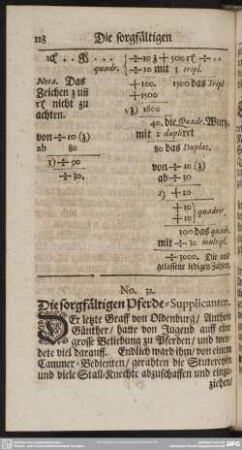 118 Die sorgfältigen
quadr. ÷10 mit 3 tripl.
Nota. Das
Zeichen ʒ uñ
nicht zu
achten.
+100. 1500 das Tripl
+1500
1600
40. die Quadr. Wurz.
mit 2 duplirt
80 das Duplat.
von ÷10 (ʒ)
ab 80
1) ÷90
÷30.
von ÷10 (ʒ)
ab ÷30
2) +20
+10
+10 quadrir
100 das quadr.
mit ÷30 multipl.
÷3000. Die aus
gelassene ledigen Zahlen.
No. 32.
Die sorgfältigen Pferde-Supplicanten.
DEr letzte Graff von Oldenburg / Anthon
Günther / hatte von Jugend auff eine
grosse Beliebung zu Pferden / und wen-
dete viel darauff. Endlich ward ihm / von einem
Cammer-Bedienten / gerahten die Stutereyen
und viele Stall-Knechte abzuschaffen und einzu-
ziehen /